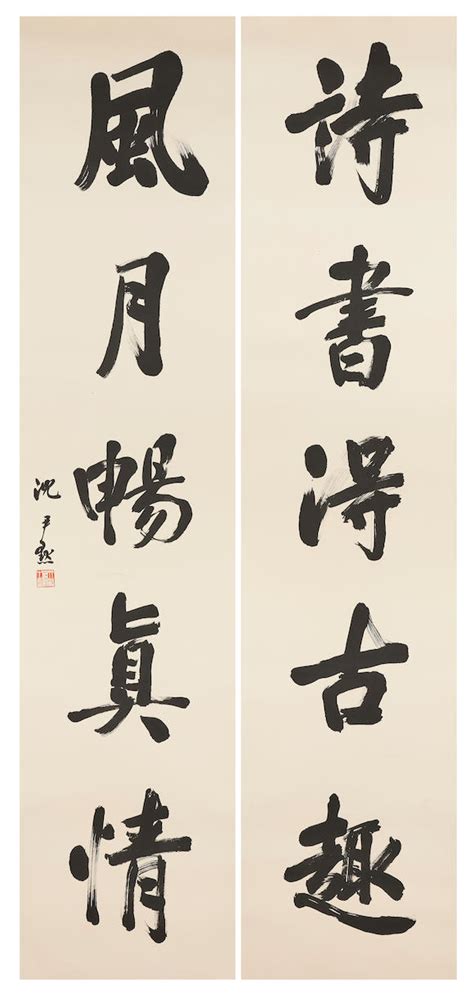 詩書得古趣
風月暢真情
沈尹默